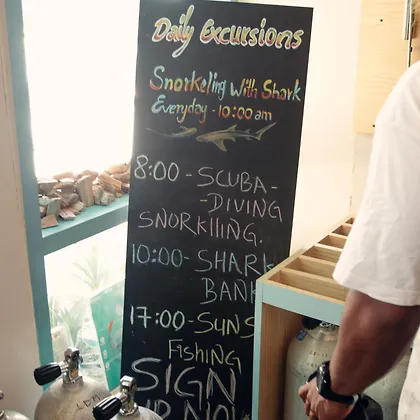 Daily Excursions
Snorkeling with Shark
Everyday - 10:00 am
8:00 - SCUBA-
-DIVING
SNORKIIING.
10:00 - SHARK
BANK
17:00 - SUNS
FISHING
SIGN
UP NOW